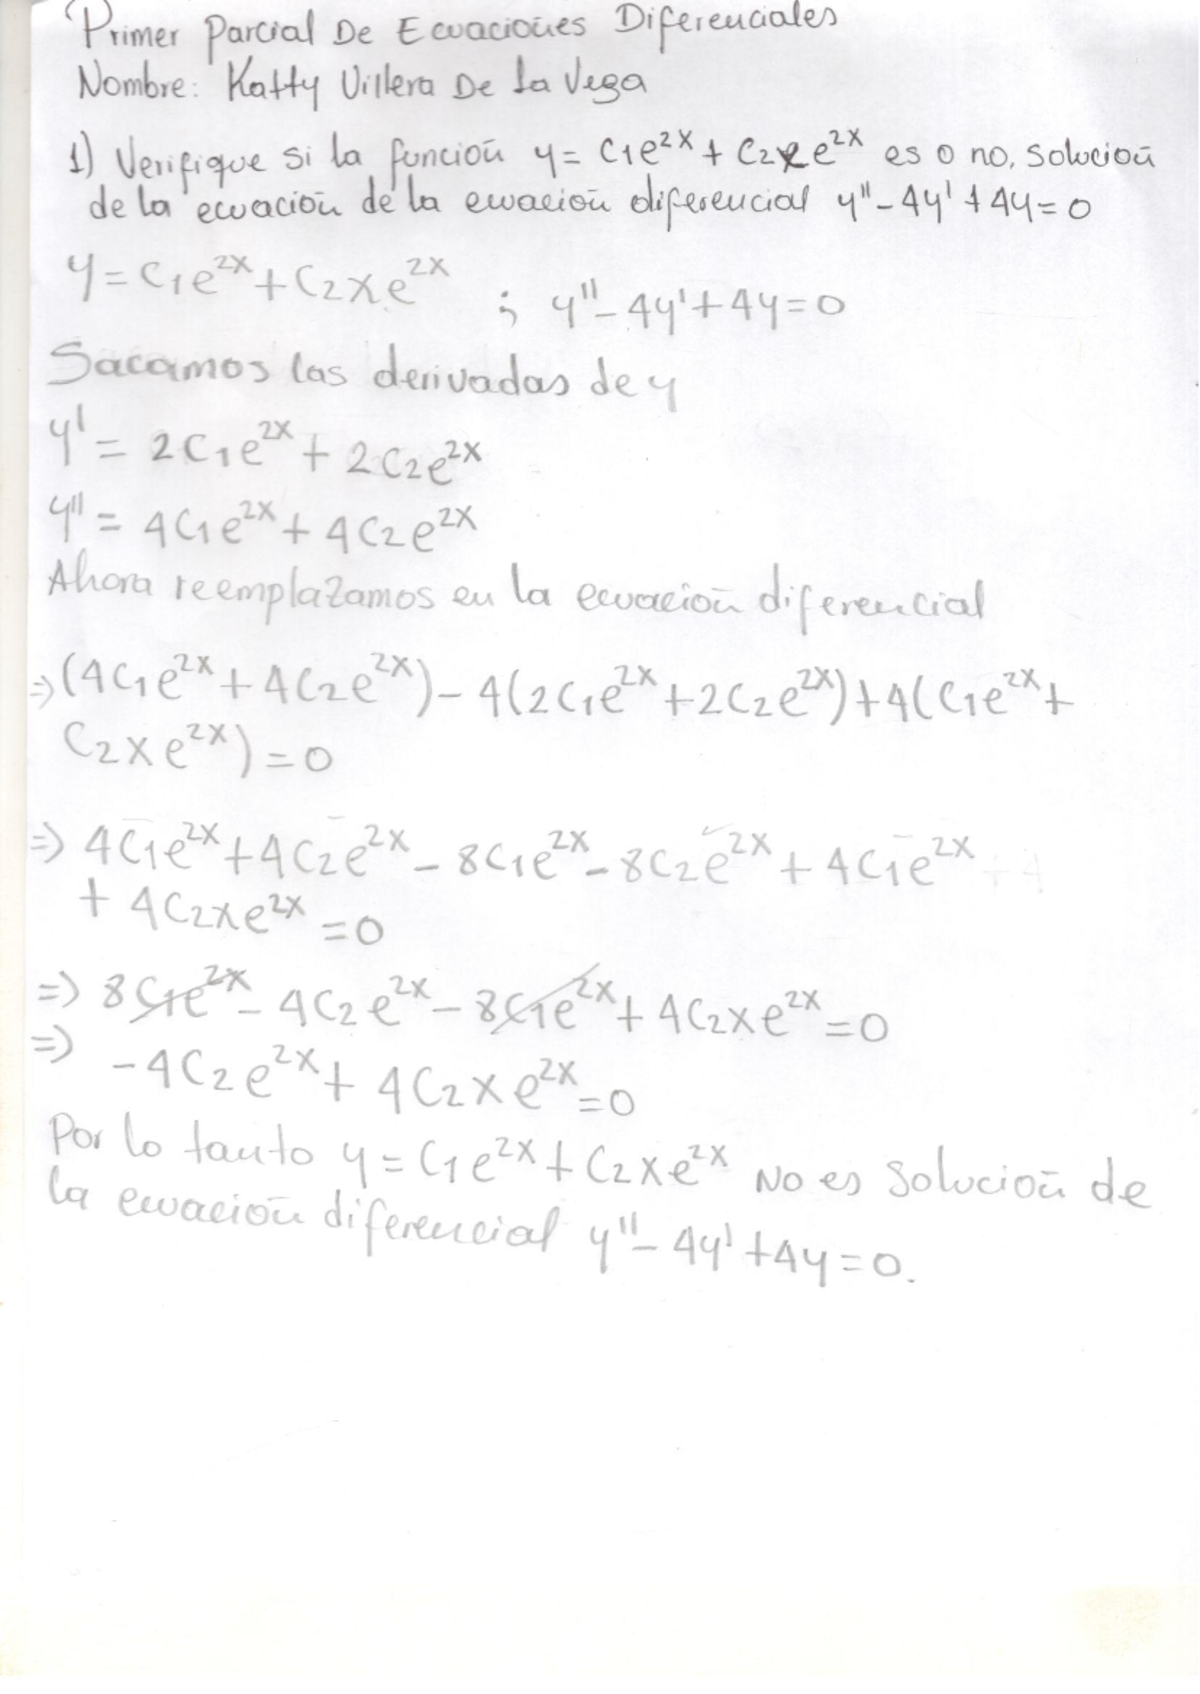 Primer Parcial De Ecuaciones Diferenciales
Nombre: Katty Villera De La Vega
1) Verifique si la función y = C₁e²ˣ + C₂xe²ˣ es o no, solución
de la ecuación de la ecuación diferencial y'' - 4y' + 4y = 0
y = C₁e²ˣ + C₂xe²ˣ ; y'' - 4y' + 4y = 0
Sacamos las derivadas de y
y' = 2C₁e²ˣ + 2C₂e²ˣ
y'' = 4C₁e²ˣ + 4C₂e²ˣ
Ahora reemplazamos en la ecuación diferencial
⇒ (4C₁e²ˣ + 4C₂e²ˣ) - 4(2C₁e²ˣ + 2C₂e²ˣ) + 4(C₁e²ˣ +
C₂xe²ˣ) = 0
⇒ 4C₁e²ˣ + 4C₂e²ˣ - 8C₁e²ˣ - 8C₂e²ˣ + 4C₁e²ˣ
+ 4C₂xe²ˣ = 0
⇒ 8C₁e²ˣ - 4C₂e²ˣ - 8C₁e²ˣ + 4C₂xe²ˣ = 0
⇒ -4C₂e²ˣ + 4C₂xe²ˣ = 0
Por lo tanto y = C₁e²ˣ + C₂xe²ˣ No es solución de
la ecuación diferencial y'' - 4y' + 4y = 0.